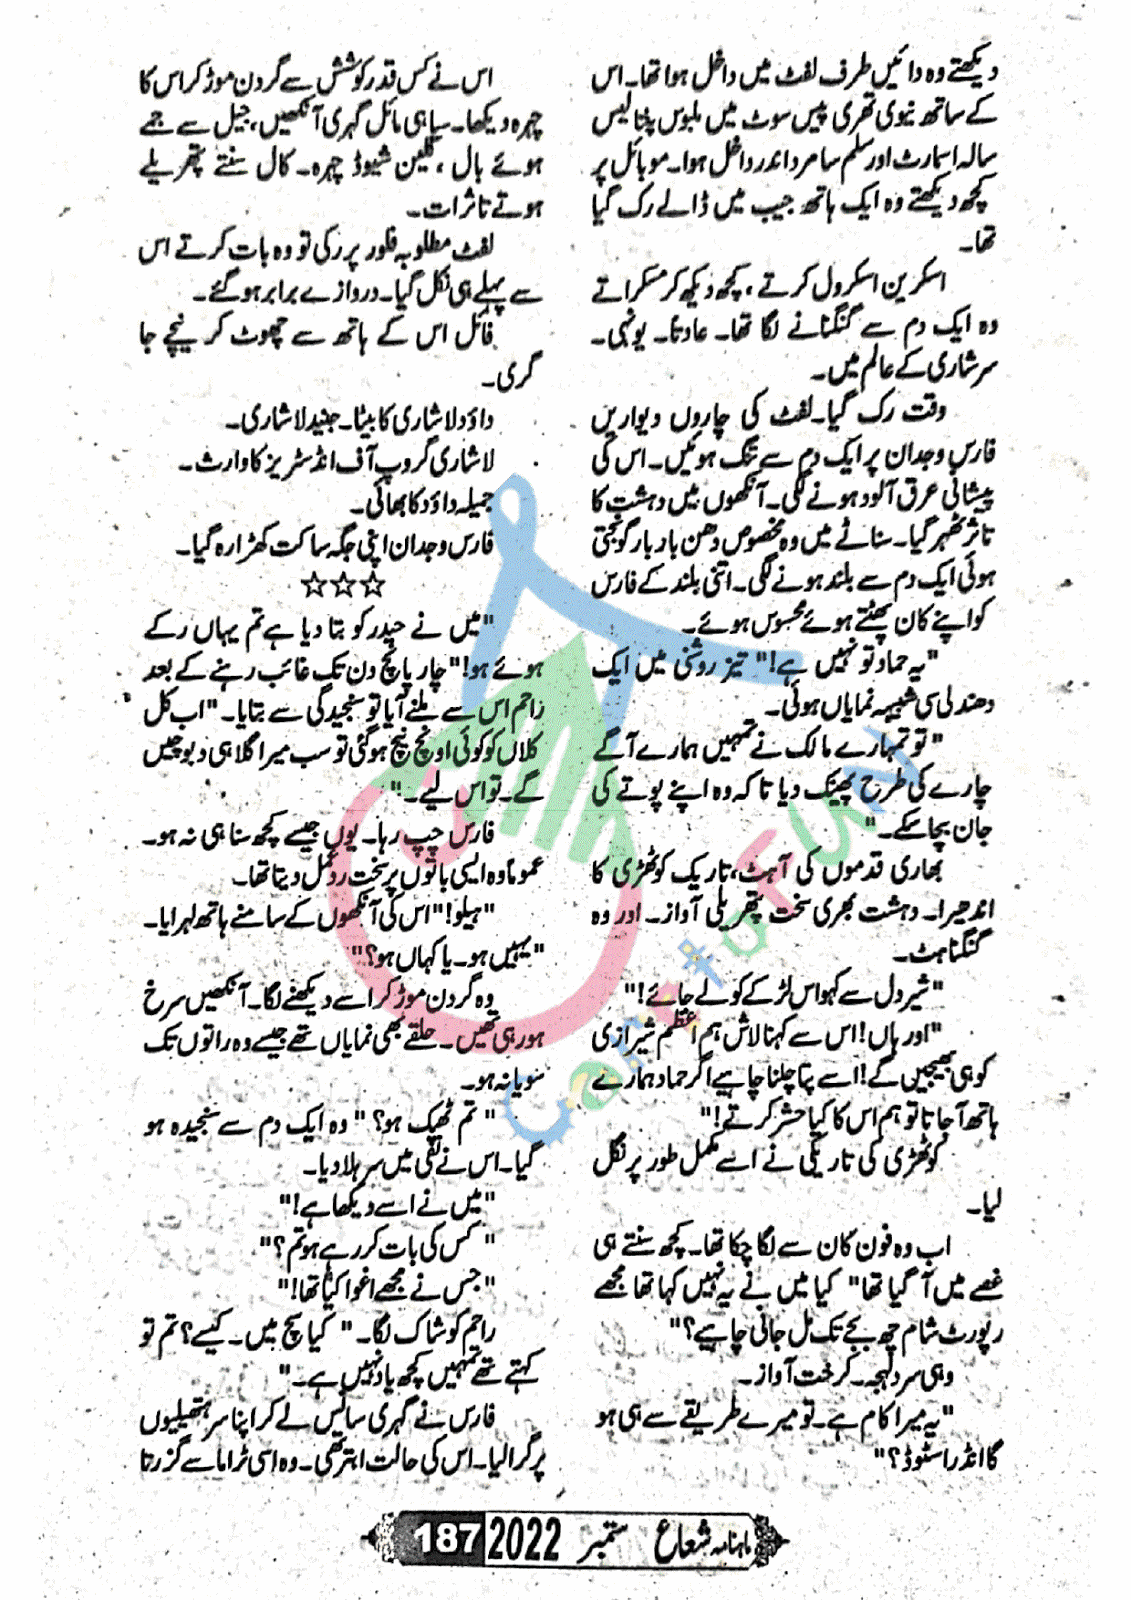 دیکھتے وہ دائیں طرف لفٹ میں داخل ہوا تھا۔ اس
کے ساتھ نیوی تھری پیس سوٹ میں ملبوس پینتالیس
سالہ اسمارٹ اور سلم سا مرد اندر داخل ہوا۔ موبائل پر
کچھ دیکھتے وہ ایک ہاتھ جیب میں ڈالے رک گیا
تھا۔
اسکرین اسکرول کرتے، کچھ دیکھ کر مسکراتے
وہ ایک دم سے گنگنانے لگا تھا۔ عادتا۔ یونہی۔
سرشاری کے عالم میں۔
وقت رک گیا۔ لفٹ کی چاروں دیواریں
فارس وجدان پر ایک دم سے تنگ ہوئیں۔ اس کی
پیشانی عرق آلود ہونے لگی۔ آنکھوں میں دہشت کا
تاثر ٹھہر گیا۔ سناٹے میں وہ مخصوص دھن بار بار گونجتی
ہوئی ایک دم سے بلند ہونے لگی۔ اتنی بلند کے فارس
کو اپنے کان پھٹتے ہوئے محسوس ہوئے۔
"یہ حماد تو نہیں ہے!" تیز روشنی میں ایک
دھندلی سی شبیہہ نمایاں ہوئی۔
"تو تمہارے مالک نے تمہیں ہمارے آگے
چارے کی طرح پھینک دیا تا کہ وہ اپنے پوتے کی
جان بچا سکے۔"
بھاری قدموں کی آہٹ، تاریک کوٹھڑی کا
اندھیرا۔ دہشت بھری سخت پتھریلی آواز۔ اور وہ
گنگناہٹ۔
"شیردل سے کہو اس لڑکے کو لے جائے!"
"اور ہاں! اس سے کہنا لاش ہم اعظم شیرازی
کو ہی بھیجیں گے! اسے پتا چلنا چاہیے اگر حماد ہمارے
ہاتھ آ جاتا تو ہم اس کا کیا حشر کرتے!"
کوٹھڑی کی تاریکی نے اسے مکمل طور پر نگل
لیا۔
اب وہ فون کان سے لگا چکا تھا۔ کچھ سنتے ہی
غصے میں آ گیا تھا" کیا میں نے یہ نہیں کہا تھا مجھے
رپورٹ شام چھ بجے تک مل جانی چاہیے؟"
وہی سرد لہجہ۔ کرخت آواز۔
"یہ میرا کام ہے۔ تو میرے طریقے سے ہی ہو
گا انڈر اسٹوڈ؟"
اس نے کس قدر کوشش سے گردن موڑ کر اس کا
چہرہ دیکھا۔ سیاہی مائل گہری آنکھیں، جیل سے جمے
ہوئے بال، کلین شیوڈ چہرہ۔ کال سنتے پتھریلے
ہوتے تاثرات۔
لفٹ مطلوبہ فلور پر رکی تو وہ بات کرتے اس
سے پہلے ہی نکل گیا۔ دروازے برابر ہو گئے۔
فائل اس کے ہاتھ سے چھوٹ کر نیچے جا
گری۔
داؤد لاشاری کا بیٹا۔ جنید لاشاری۔
لاشاری گروپ آف انڈسٹریز کا وارث۔
جمیلہ داؤد کا بھائی۔
فارس وجدان اپنی جگہ ساکت کھڑا رہ گیا۔
☆☆☆
"میں نے حیدر کو بتا دیا ہے تم یہاں رکے
ہوئے ہو!" چار پانچ دن تک غائب رہنے کے بعد
راحم اس سے ملنے آیا تو سنجیدگی سے بتایا۔ "اب کل
کلاں کو کوئی اونچ نیچ ہو گئی تو سب میرا گلا ہی دبوچیں
گے۔ تو اس لیے۔"
فارس چپ رہا۔ یوں جیسے کچھ سنا ہی نہ ہو۔
عموماً وہ ایسی باتوں پر سخت ردعمل دیتا تھا۔
"ہیلو!" اس کی آنکھوں کے سامنے ہاتھ لہرایا۔
"یہیں ہو۔ یا کہاں ہو؟"
وہ گردن موڑ کر اسے دیکھنے لگا۔ آنکھیں سرخ
ہو رہی تھیں۔ حلقے بھی نمایاں تھے جیسے وہ راتوں تک
سویا نہ ہو۔
"تم ٹھیک ہو؟" وہ ایک دم سے سنجیدہ ہو
گیا۔ اس نے نفی میں سر ہلا دیا۔
"میں نے اسے دیکھا ہے!"
"کس کی بات کر رہے ہو تم؟"
"جس نے مجھے اغوا کیا تھا!"
راحم کو شاک لگا۔ "کیا سچ میں۔ کیسے؟ تم تو
کہتے تھے تمہیں کچھ یاد نہیں ہے۔"
فارس نے گہری سانس لے کر اپنا سر ہتھیلیوں
پر گرا لیا۔ اس کی حالت ابتر تھی۔ وہ اسی ٹراما سے گزرتا
ماہنامہ شعاع ستمبر 2022 187